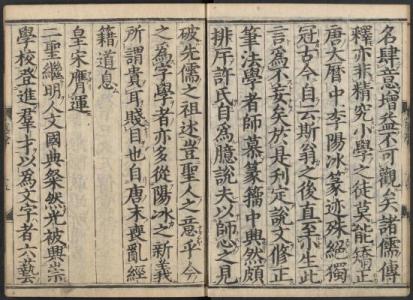 名肆意增益不可觀矣諸儒傳
釋亦非精究小學之徒莫能矯正
唐大曆中李陽冰篆迹殊絕獨
冠古今自云斯翁之後直至小生此
言為不妄矣於是刊定說文修正
筆法學者師慕篆籀中興然頗
排斥許氏自為臆說夫以師心之見
破先儒之祖述豈聖人之意乎今
之為字學者亦多從陽冰之新義
所謂貴耳賤目也自唐末喪亂經
籍道息
皇宋膺運
二聖繼明人文國典粲然光被興崇
學校登進羣才以為文字者六藝